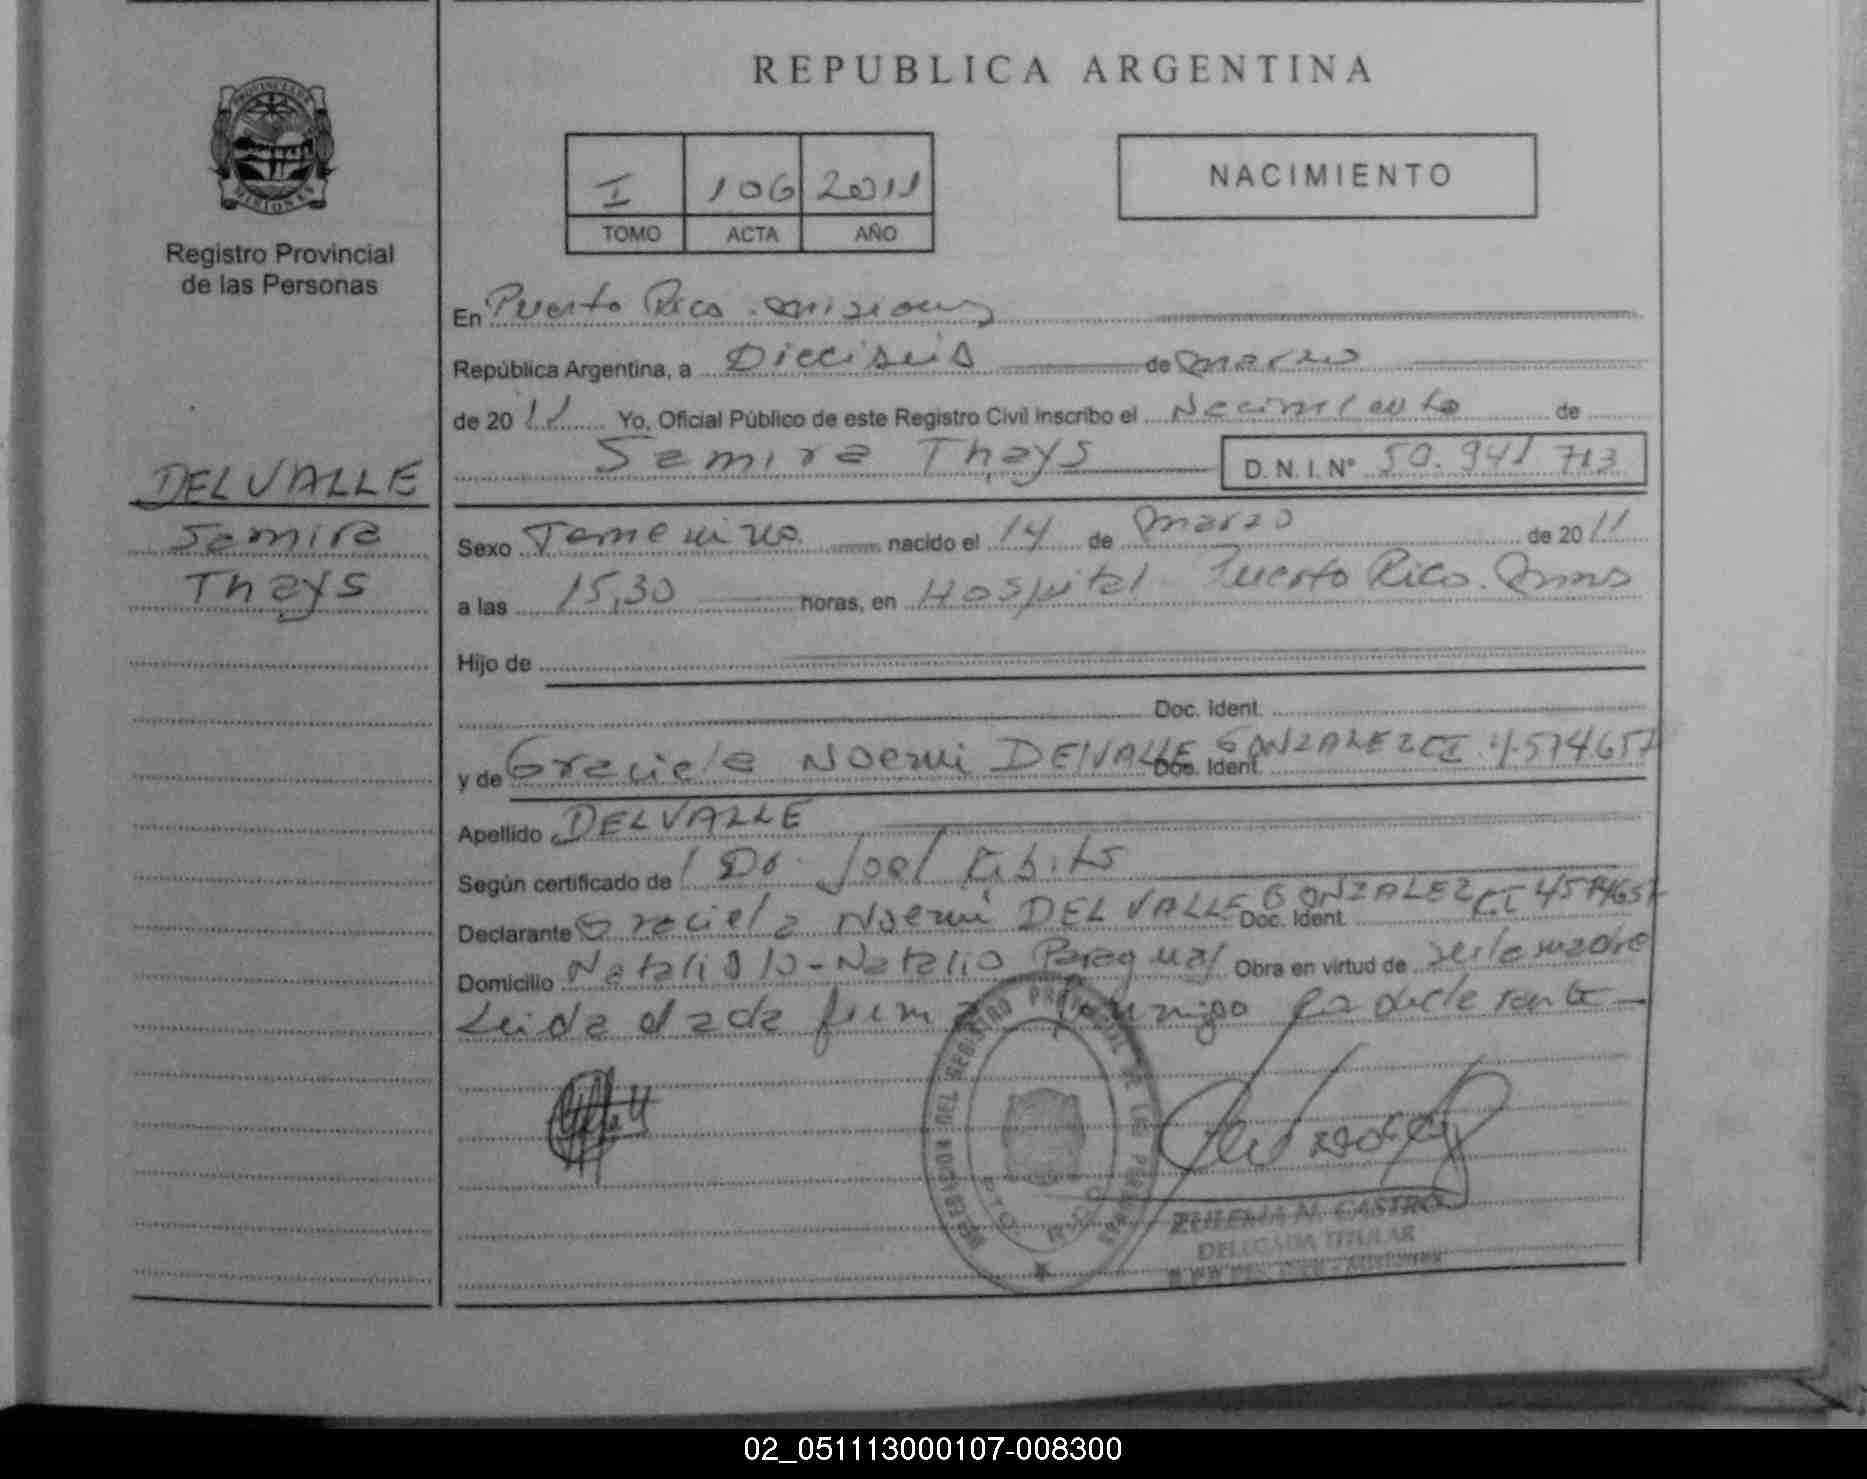 REPUBLICA ARGENTINA
PROVINCIA DE MISIONES
Registro Provincial
de las Personas
I 106 2011
TOMO ACTA AÑO
NACIMIENTO
En Puerto Rico. Misiones
República Argentina, a Dieciseis de marzo
de 20 11 Yo, Oficial Público de este Registro Civil inscribo el Nacimiento de
Samira Thays D. N. I. N° 50.941 713
DELVALLE
Samira
Thays
Sexo Femenino nacido el 14 de marzo de 20 11
a las 15,30 horas, en Hospital Puerto Rico. Mnes
Hijo de
Doc. Ident.
y de Graciela Noemi DELVALLE GONZALEZ Doc. Ident. CI 4.574.657
Apellido DELVALLE
Según certificado de Dr. Joel
Declarante Graciela Noemi DEL VALLE GONZALEZ Doc. Ident. CI 4574657
Domicilio Natalio-Natalio Paraguay Obra en virtud de ser la madre
Leida dada firma conmigo la declarante
DELEGACION DEL REGISTRO PROVINCIAL DE LAS PERSONAS
PTO. RICO
ZULEMA N. CASTRO
DELEGADA TITULAR
02_051113000107-008300